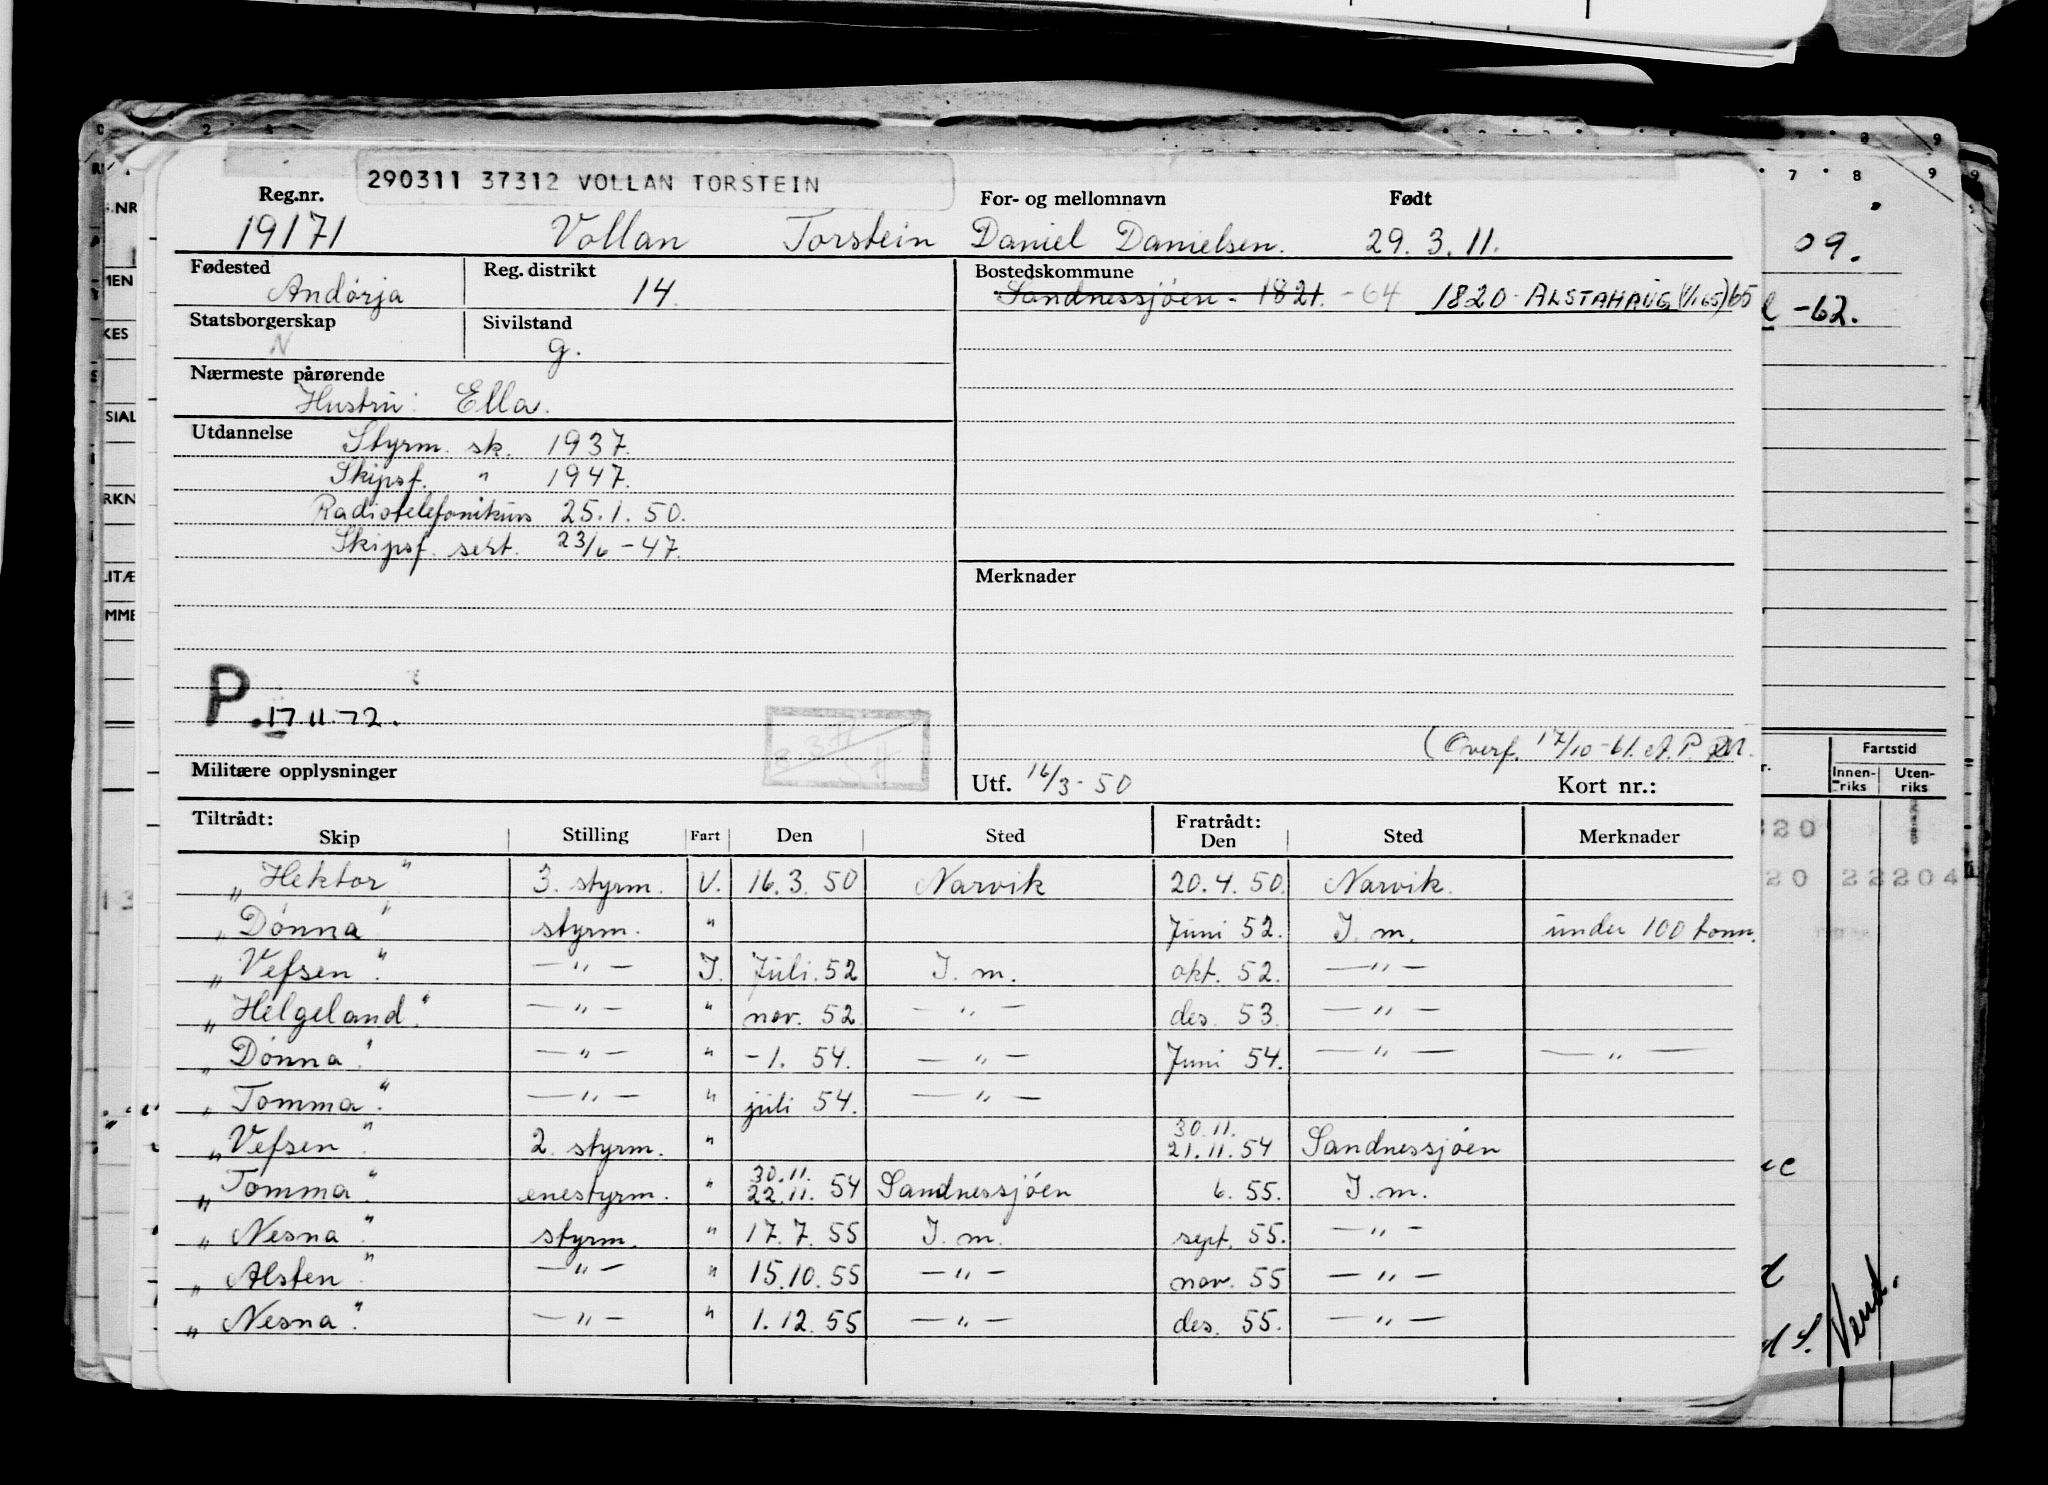 290311 37312 VOLLAN TORSTEIN
Reg.nr. For- og mellomnavn Født
19171 Vollan Torstein Daniel Danielsen. 29. 3. 11.
Fødested Reg. distrikt Bostedskommune
Andørja 14. Sandnessjøen - 1821. -64 1820 - ALSTAHAUG (1/1 65) 65
Statsborgerskap Sivilstand
N g.
Nærmeste pårørende
Hustru: Ella.
Utdannelse Styrm. sk. 1937.
Skipsf. " 1947.
Radiotelefonikurs 25.1.50.
Skipsf. sert. 23/6 -47.
Merknader
P. 17 11 72.
(Overf. 17/10 -61. A. P. M.
Militære opplysninger Utf. 16/3 - 50 Kort nr.:
Tiltrådt: Fratrådt:
Skip Stilling Fart Den Sted Den Sted Merknader
„Hektor" 3. styrm. V. 16. 3. 50 Narvik 20. 4. 50. Narvik.
„Dønna" styrm. " Juni 52. I. m. under 100 tonn.
„Vefsen". —"— I. Juli. 52 I. m. okt. 52. —"—
„Helgeland". —"— " nov. 52 —"— des. 53. —"—
„Dønna". —"— " -1. 54. —"— Juni 54. —"— —"—
„Tomma". —"— " juli 54. —"—
30. 11.
„Vefsen". 2. styrm. " 21. 11. 54 Sandnessjøen
30. 11.
„Tomma". enestyrm. " 22. 11. 54 Sandnessjøen 6. 55. I. m.
„Nesna". styrm. " 17. 7. 55 I. m. sept. 55. —"—
„Alsten". —"— " 15. 10. 55 —"— nov. 55 —"—
„Nesna". —"— " 1. 12. 55 —"— des. 55. —"—
09.
-62.
Fartstid
Innen-riks Uten-riks
20
20 22204
Vend.